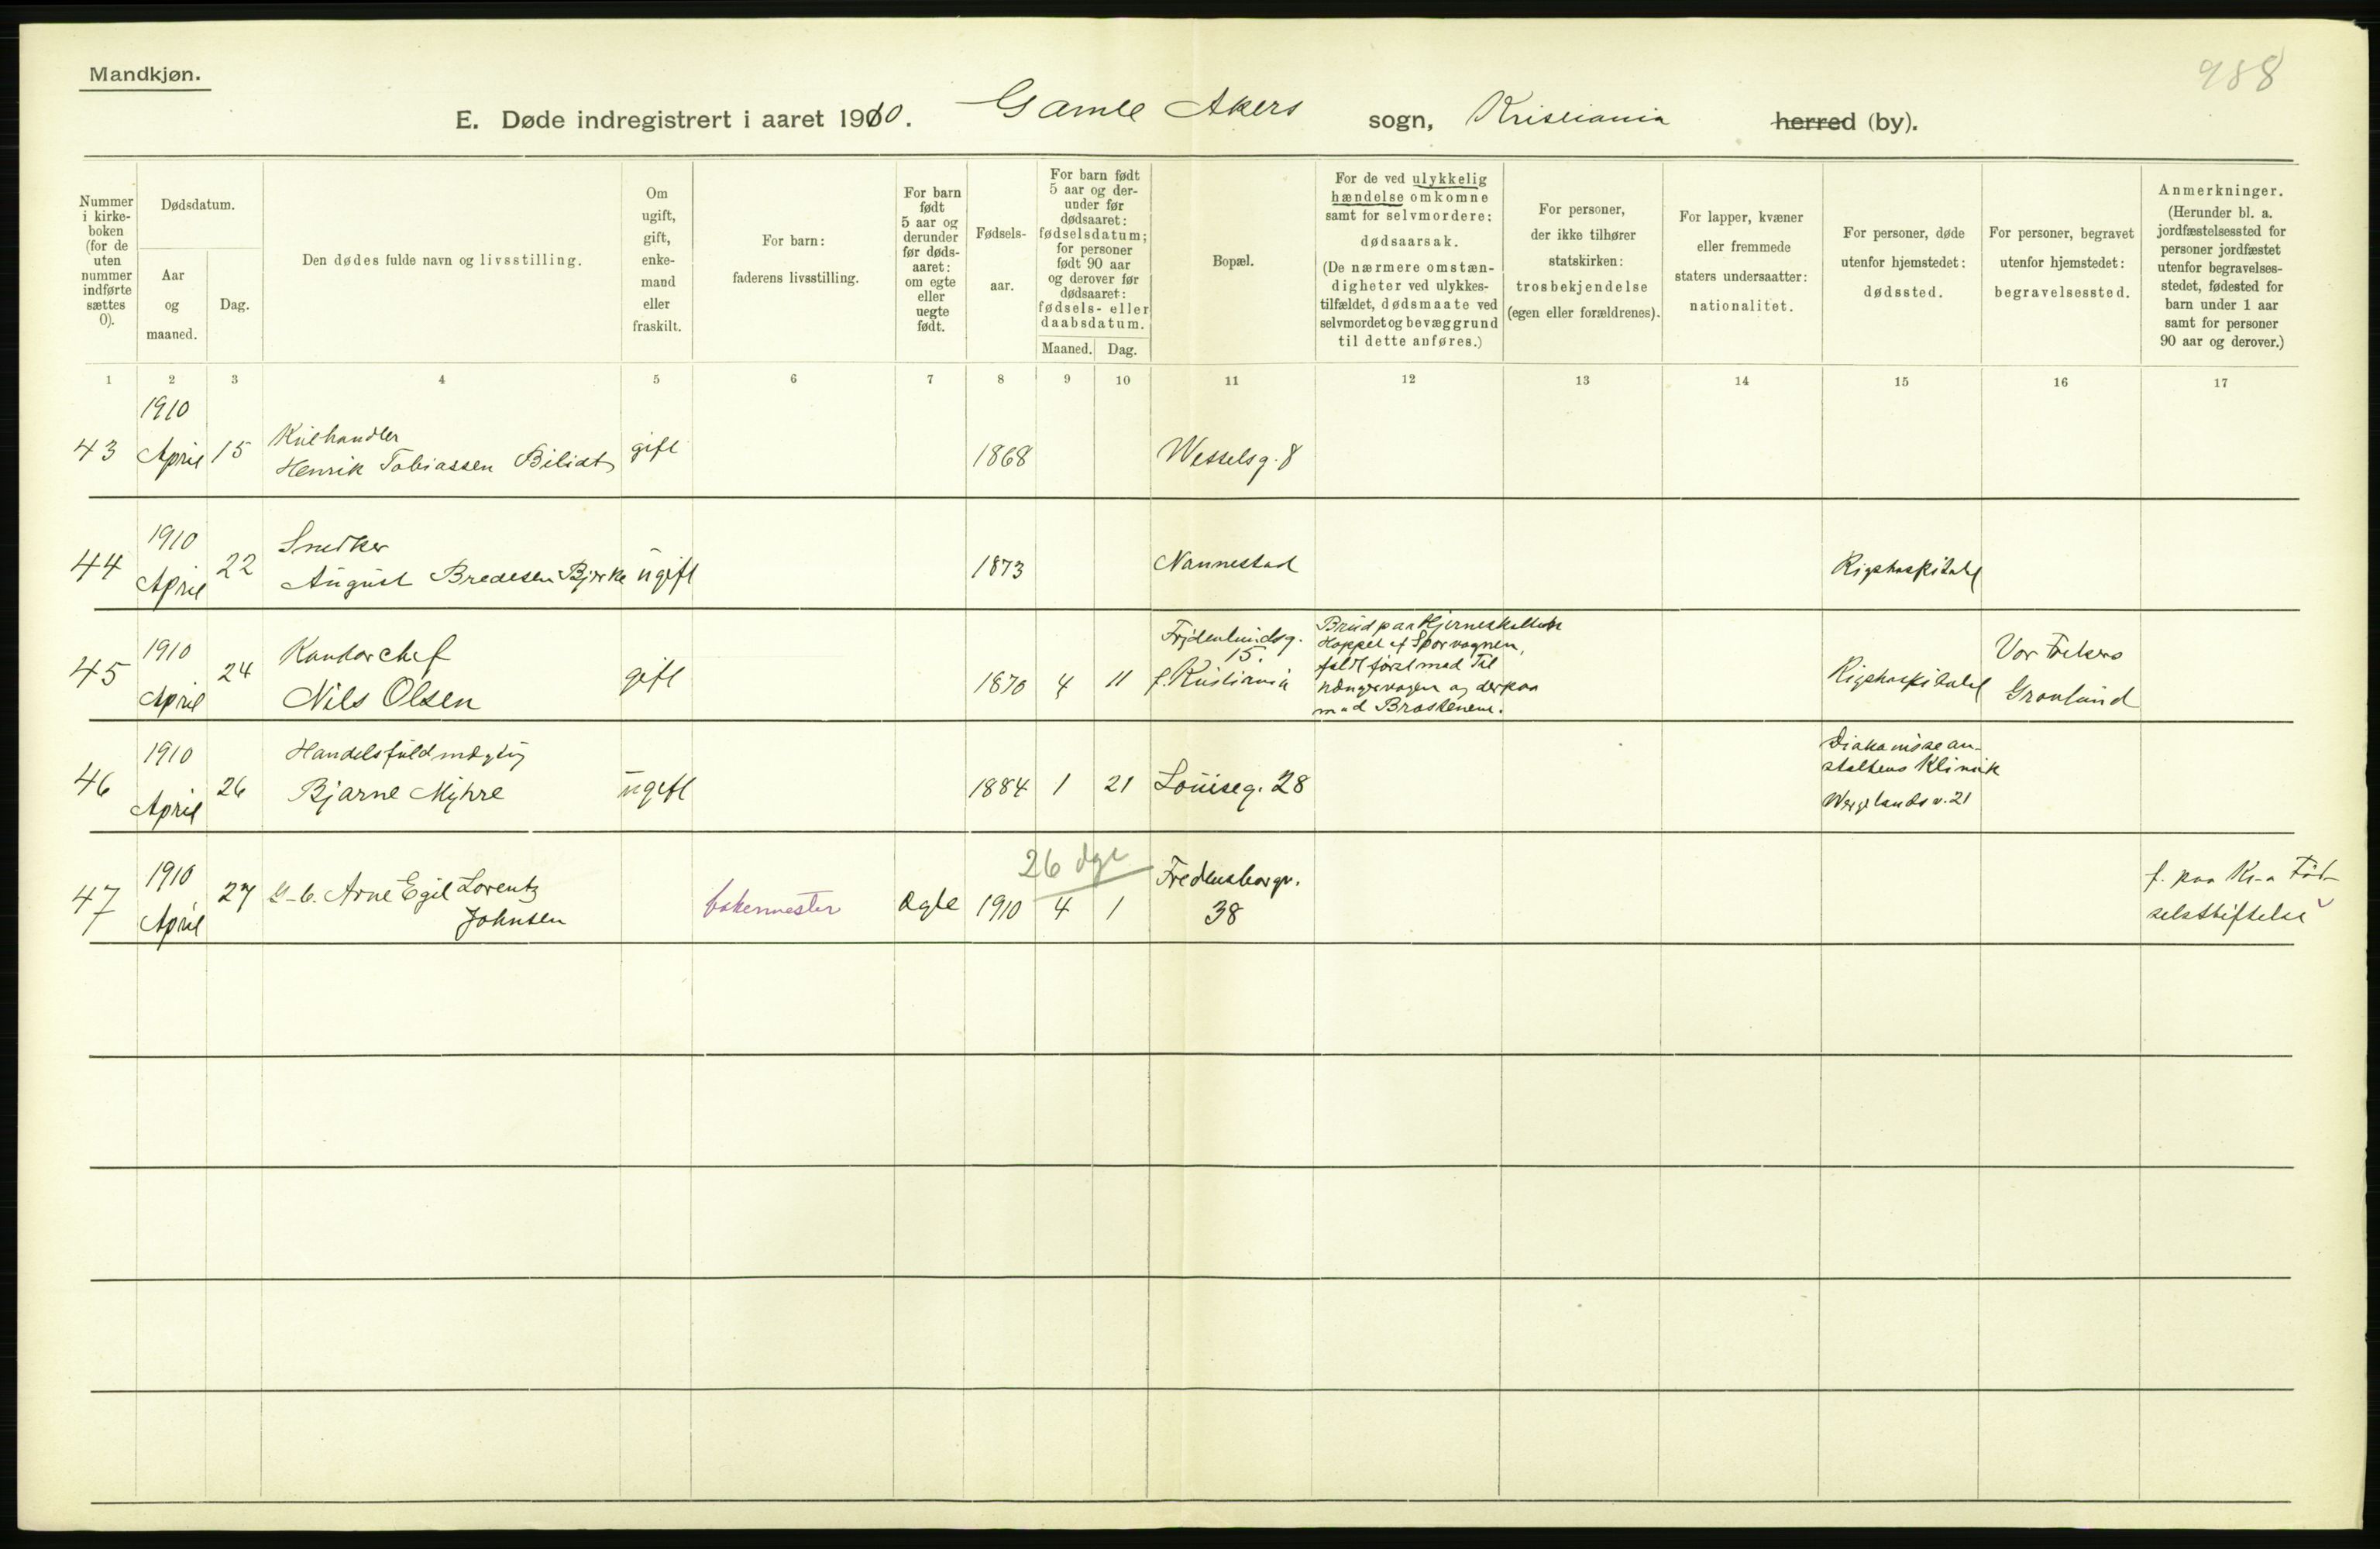 Mandkjøn.
988
E. Døde indregistrert i aaret 1910. Gamle Akers sogn, Kristiania herred (by).
Nummer i kirkeboken (for de uten nummer indførte sættes 0).
Dødsdatum.
Aar og maaned.
Dag.
Den dødes fulde navn og livsstilling.
Om ugift, gift, enkemand eller fraskilt.
For barn: faderens livsstilling.
For barn født 5 aar og derunder før dødsaaret: om egte eller uegte født.
Fødselsaar.
For barn født 5 aar og derunder før dødsaaret: fødselsdatum; for personer født 90 aar og derover før dødsaaret: fødsels- eller daabsdatum.
Maaned. Dag.
Bopæl.
For de ved ulykkelig hændelse omkomne samt for selvmordere: dødsaarsak. (De nærmere omstændigheter ved ulykkestilfældet, dødsmaate ved selvmordet og bevæggrund til dette anføres.)
For personer, der ikke tilhører statskirken: trosbekjendelse (egen eller forældrenes).
For lapper, kvæner eller fremmede staters undersaatter: nationalitet.
For personer, døde utenfor hjemstedet: dødssted.
For personer, begravet utenfor hjemstedet: begravelsessted.
Anmerkninger. (Herunder bl. a. jordfæstelsessted for personer jordfæstet utenfor begravelsesstedet, fødested for barn under 1 aar samt for personer 90 aar og derover.)
1 2 3 4 5 6 7 8 9 10 11 12 13 14 15 16 17
1910
Kulhandler
43 April 15 Henrik Tobiassen gift 1868 Wesselsg. 8
1910
Snedker
44 April 22 August Bredesen Bjerke ugift 1873 Nannestad Rigshospitalet
1910
Kontorchef
45 April 24 Nils Olsen gift 1870 4 11
Frydenlundsg. 15.
f. Kristiania
Brud paa Hjerneskallen
Hoppet af Sporvognen,
faldt først mod Til
hængervogen og derpaa
mod Brostenene.
Rigshospitalet
Vor Frelsers
Grønland
1910
Handelsfuldmægtig
46 April 26 Bjarne Myhre ugift 1884 1 21 Louiseg. 28
Diakonissean-
staltens Klinik
Wergelandsv. 21
1910
26 dge
47 April 27 Arne Egil Lorentz
Johnsen
bakermester ægte 1910 4 1
Fredensborgv.
38
f. paa Kr-a Fød-
selsstiftelse